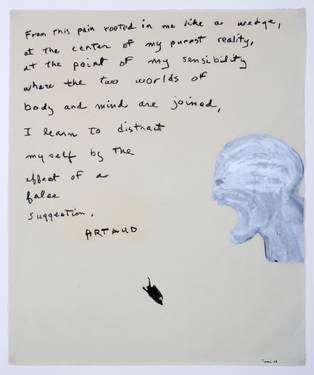 From this pain rooted in me like a wedge,
at the center of my purest reality,
at the point of my sensibility
where the two worlds of
body and mind are joined,
I learn to distract
myself by the
effect of a
false
suggestion.
ARTAUD